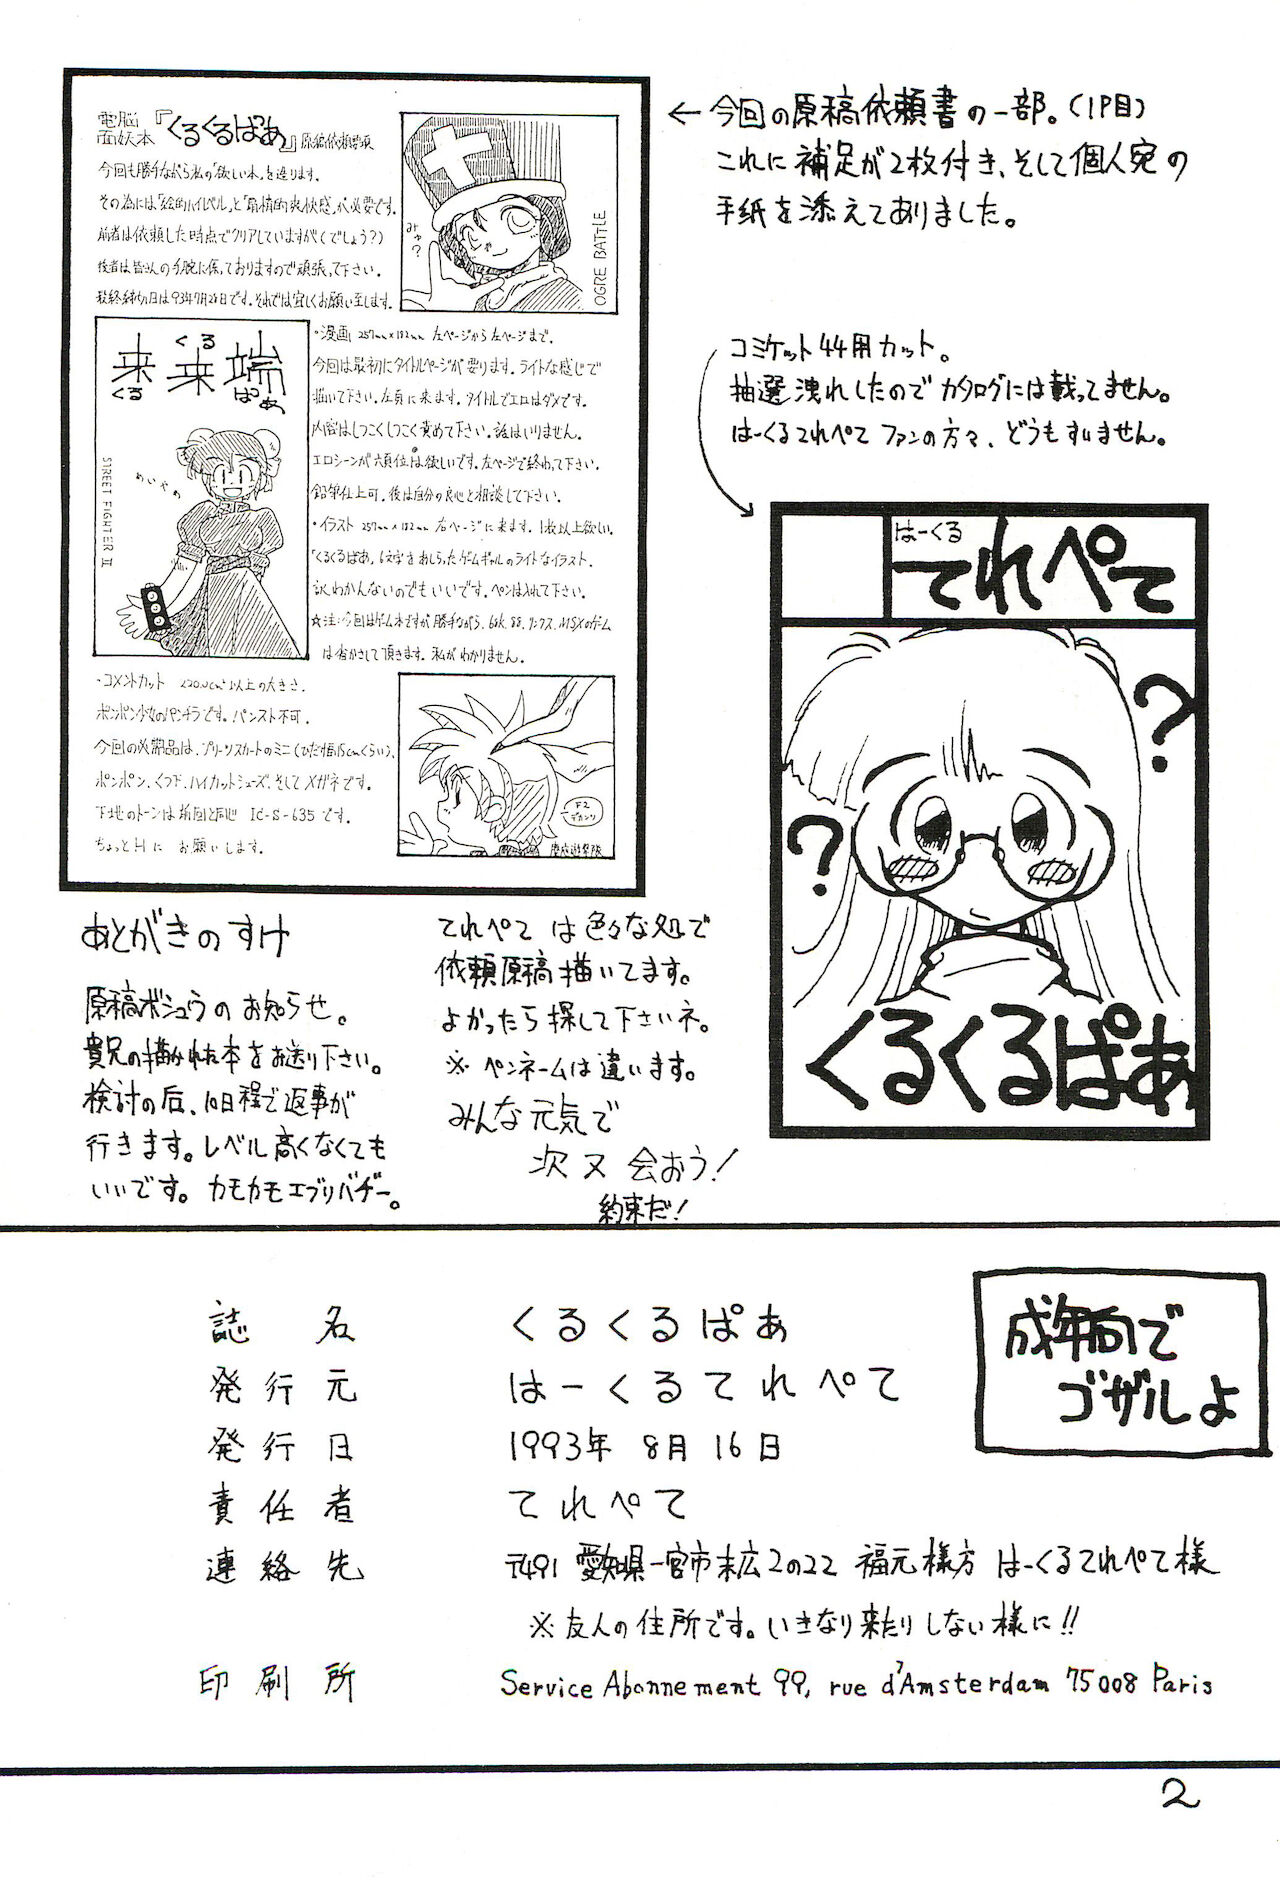 電脳面妖本『くるくるぱあ』原稿依頼要項
今回も勝手ながら私の「欲しい本」を造ります。
その為には「絵的ハイレベル」と「扇情的爽快感」が必要です。
前者は依頼した時点でクリアしていますが(くでしょう?)
後者は皆さんの手腕に係っておりますので頑張って下さい。
最終締切日は93年7月26日です。それでは宜しくお願い至します。
みゅ?
OGRE BATTLE
来来端
くるくるぱあ
めいやぁ
STREET FIGHTER II
・漫画 257mm×182mm 左ページから左ページまで。
今回は最初にタイトルページが要ります。ライトな感じで
描いて下さい。左頁に来ます。タイトルでエロはダメです。
内容はしつこくしつこく責めて下さい。話はいりません。
エロシーンが六頁位は欲しいです。左ページで終わって下さい。
鉛筆仕上可。後は自分の良心と相談して下さい。
・イラスト 257mm×182mm 右ページに来ます。1枚以上欲しい。
「くるくるぱあ」文字をあしらったゲームギャルのライトなイラスト。
訳わかんないのでもいいです。ペンは入れて下さい。
☆注:今回はゲーム本ですが勝手ながら、68K、88、リンクス、MSXのゲーム
は省かさして頂きます。私がわかりません。
・コメントカット 220.0cm²以上の大きさ。
ポンポン少女のパンチラです。パンスト不可。
今回の必需品は、プリーツスカートのミニ(ひだ幅15cmくらい)、
ポンポン、くつ下、ハイカットシューズ、そしてメガネです。
下地のトーンは前回と同じ IC-S-635です。
ちょっとHに お願いします。
F2
デカンリ
慶成遊撃隊
←今回の原稿依頼書の一部。(1P目)
これに補足が2枚付き、そして個人宛の
手紙を添えてありました。
コミケット44用カット。
抽選洩れしたのでカタログには載ってません。
はーくるてれぺてファンの方々、どうもすいません。
はーくる
てれぺて
?
?
くるくるぱあ
あとがきのすけ
原稿ボシュウのお知らせ。
貴兄の描かれた本をお送り下さい。
検討の后、10日程で返事が
行きます。レベル高くなくても
いいです。カモカモエブリバデー。
てれぺては色々な処で
依頼原稿描いてます。
よかったら探して下さいネ。
※ペンネームは違います。
みんな元気で
次又会おう!
約束だ!
成年向で
ゴザルよ
誌名 くるくるぱあ
発行元 はーくるてれぺて
発行日 1993年8月16日
責任者 てれぺて
連絡先 〒491 愛知県一宮市末広2の22 福元様方 はーくるてれぺて様
※友人の住所です。いきなり来たりしない様に!!
印刷所 Service Abonnement 99, rue d'Amsterdam 75008 Paris
2